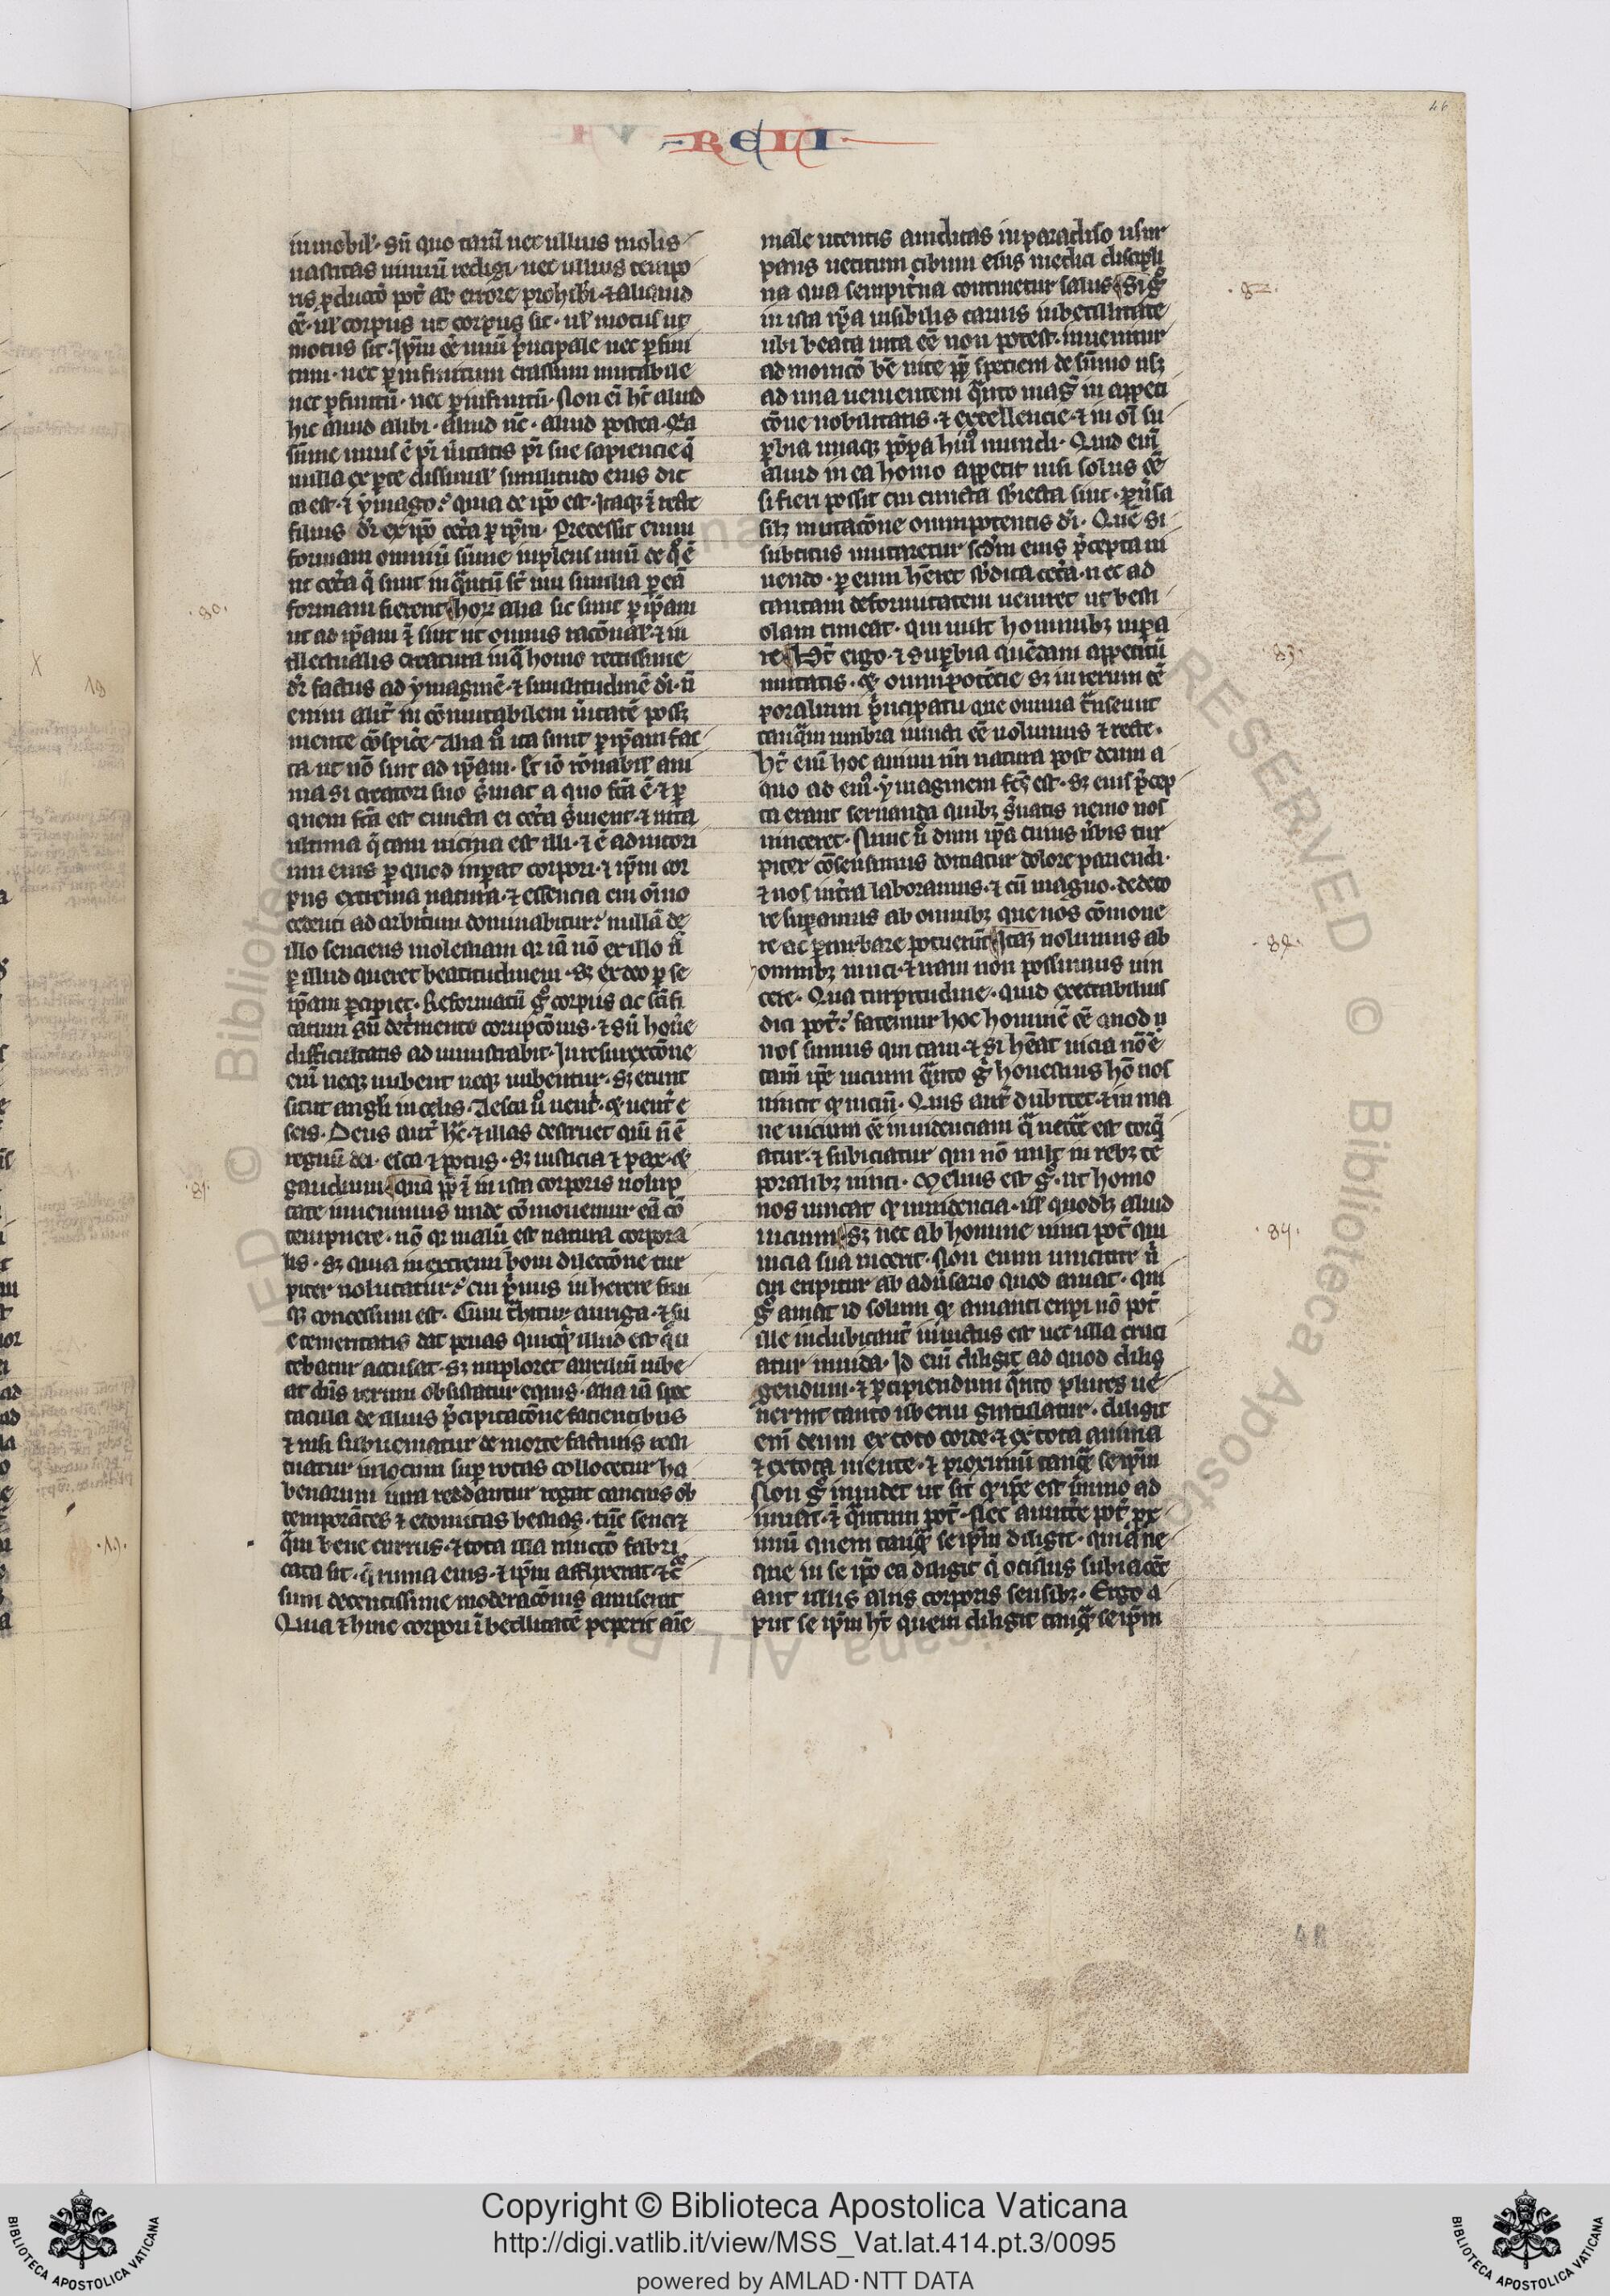 46
RELI
inmobil'· sn̄ quo tam̄ nec ullius molis
uastitas unum̄ redigi· nec ullius tempo
ris ꝓductō pot̄ ab errore prohib'i· ⁊ aliquid
eē· ul' corpus ut corpus sit· ul' motus ut
motus sit· Ip̄m eē unū p͛ncipale nec ꝑfini
tum· nec ꝑ infinitum crassum mutabile
nec ꝑfinitū· nec ꝑ infinitū· Non eī ht̄ aliud
hic aliud alibi· aliud nc̄· aliud postea· Q͛a
sūme unus ē pr̄ ūitatis pr̄ sue sapiencie q̄
nulla ex ꝑte dissimil' similitudo eius dic
ta est· ⁊ ymago· quia de ip̄o est· Itaqꝫ ⁊ recte
filius dr̄ ex ip̄o cet̄a ꝑ ip̄m· Precessit enim
formam omniū sūme inplens unū de q͛ ē
ut cet̄a q̄ sunt inq͛ntū st̄ uni similia ꝑ eā
formam fierent hoꝝ alia sic sunt ꝑ ip̄am
ut ad ip̄am ⁊ sint ut omnis racōnal'· ⁊ in
tellectualis creatura in q͛ homo rectissime
dr̄ factus ad ymaginē ⁊ similitudinē di̅· n̄
enim alit̄ in cōmutabilem ūitatē possꝫ
mente cōspic̄e· Alia ū ita sunt ꝑ ip̄am fac
ta· ut nō sint ad ip̄am· Et iō rōnabil' ani
ma si creatori suo s̄uiat a quo fc̄a ē· ⁊ ꝑ
quem fc̄a est cuncta ei cet̄a s̄uient· ⁊ uita
ultima q̄ tam uicina est illi· ⁊ ē adiutori
um eius ꝑ quod inꝑat corpori· ⁊ ip̄m cor
pus extrema natura· ⁊ essencia cui om̄o
cedenti ad arbit̄um dominabitur· nullā de
illo senciens molestiam qr iā nō ex illo n̄
ꝑ illud queret beatitudinem· sꝫ ex deo ꝑ se
ip̄am ꝑcipiet· Reformatū g͛ corpus ac sc̄ifi
catum sn̄ det̄mento corupcōnis· ⁊ sn̄ hon̄e
difficultatis administrabit· In resurrexcōne
eni̅ neqꝫ nubent neqꝫ nubentur· sꝫ erunt
sicut angl'i in celis· Aesca ū uent̄· ⁊ uent̄ e
scis· Deus aut̄ hc̄· ⁊ illas destruet qm̄ n̄ ē
regnū dei· esca ⁊ potus· sꝫ iusticia ⁊ pax· ⁊
gaudium· qua pp̄ ⁊ in ista corporis uolup
tate inuenimus unde cōmonemur eā cō
tempnere· nō qr malū est natura corpora
lis· sꝫ quia in extremi boni dileccōne tur
piter uolutatur· cui p͛mis inherere frui
qꝫ concessum est· Cum t͛hitur auriga· ⁊ su
e temeritatis dat penas quicq̄ illud est q͛ u
tebatur accusat· sꝫ inploret auxiliū iube
at dn̄s rerum obsistatur equis· alia iā spec
tacula de illius p̄cipitacōne facientibus
⁊ nisi subueniatur de morte facturis resti
tuatur in locum suꝑ rotas collocetur ha
benarum iura reddantur regat caucius ob
temporātes ⁊ edomitas bestias· tūc senciꝫ
q͛m bene currus· ⁊ tota illa iunctō fabri
cata sit· q̄ ruina eius· ⁊ ip̄m afflixerat· ⁊ c͛
sum decentissime moderacōnis amiserat
Quia ⁊ hinc corpori ībecillitatē peperit aīe
male utentis auiditas in paradiso usur
pans uetitum cibum eius medici discipli
na qua sempit̄na continetur salus Si g͛
in ista ip̄a uisibilis carnis inbecillitate
ubi beata uita eē non potest· inuenitur
ad monitō bē uite pp̄ speciem de sūmo usqꝫ
ad una uenientem q͛nto maḡ in appeti
cōne nobilitatis· ⁊ excellencie· ⁊ in oī su
ꝑbia uanaqꝫ pōpa huiꝰ mundi· Quid eni̅
aliud in ea homo appetit nisi solus eē
si fieri possit cui cuncta sb̄iecta sint· ꝑūsa
silꝫ mutacōne omnipotentis di̅· Quē si
subditus imitaretur scd̄m eius p̄cepta ui
uendo· ꝑ eum hēret sb̄dita cet̄a· nec ad
tantam deformitatem ueniret ut besti
olam timeat· qui uult hominibꝫ inꝑa
re Ht̄ ergo· ⁊ suꝑbia quēdam appetitū
unitatis· ⁊ omnipotēcie sꝫ in rerum tē
poralium p͛ncipatu que omnia t̄nseunt
tanq͛m umbra inuicti eē uolumus ⁊ recte·
Ht̄ eni̅ hoc animi nr̄i natura post deum a
quo ad eiꝰ· ymaginem fcs̄ est· sꝫ eius p̄cep
ta erant seruanda quibꝫ s̄uatis nemo nos
uinceret· Nunc ū dum ip̄a cuius ūbis tur
piter cōsensimus domatur dolore pariendi·
⁊ nos in t̄ra laboramus· ⁊ cū magno· dedeco
re suꝑamur ab omnibꝫ que nos cōmoue
re ac ꝑturbare potuerūt Itaqꝫ nolumus ab
omnibꝫ uinci· ⁊ nam non possumus uin
cere· Qua turpitudine· quid exectabilius
dici pot̄· fatemur hoc hominē eē quod n
nos sumus qui tam· ⁊ si hēat uicia nō ē
tam̄ ip̄e uicium q͛nto g͛ honestius hō nos
uincit q̄ uiciū· Quis aut̄ dubitet· ⁊ in ma
ne uicium eē inuidenciam q͛ necc̄e est torq̄
atur· ⁊ subiciatur qui nō uult in rebꝫ tē
poralibꝫ uinci· Melius est g͛· ut homo
nos uincat q̄ inuidencia· ul' quodlꝫ aliud
uicium sꝫ nec ab homine uinci pot̄ qui
uicia sua uicerit· Non enim uincitur n̄
cui eripitur ab adūsario quod amat· qui
g͛ amat id solum q̄ amanti eripi nō pot̄
ille indubitant̄ inuictus est nec ulla cruci
atur inuida· Id eni̅ diligit ad quod dilig
gendum· ⁊ ꝑcipiendum q͛nto plures ue
nerint tanto ub̄eriu gratulatur· diligit
eni̅ deum ex toto corde· ⁊ ex tota anima
⁊ ex tota mente· ⁊ proximū tanq͛ seip̄m
Non g͛ inuidet ut sit q̄ ip̄e est immo ad
iuuat· ⁊ q͛ntum pot̄· Nec amitt̄e pot̄ pxi
imū quem tanq͛ seip̄m diligit· quia ne
que in se ip̄o ea diligit q̄ oculis subiacēt
aut ullis aliis corporis sensibꝫ· Ergo a
put se ip̄m ht̄ quem diligit tanq͛ seip̄m
·80·
·81·
·82·
·83·
·84·
48
Copyright © Biblioteca Apostolica Vaticana
http://digi.vatlib.it/view/MSS_Vat.lat.414.pt.3/0095
powered by AMLAD·NTT DATA
BIBLIOTECA APOSTOLICA VATICANA
BIBLIOTECA APOSTOLICA VATICANA